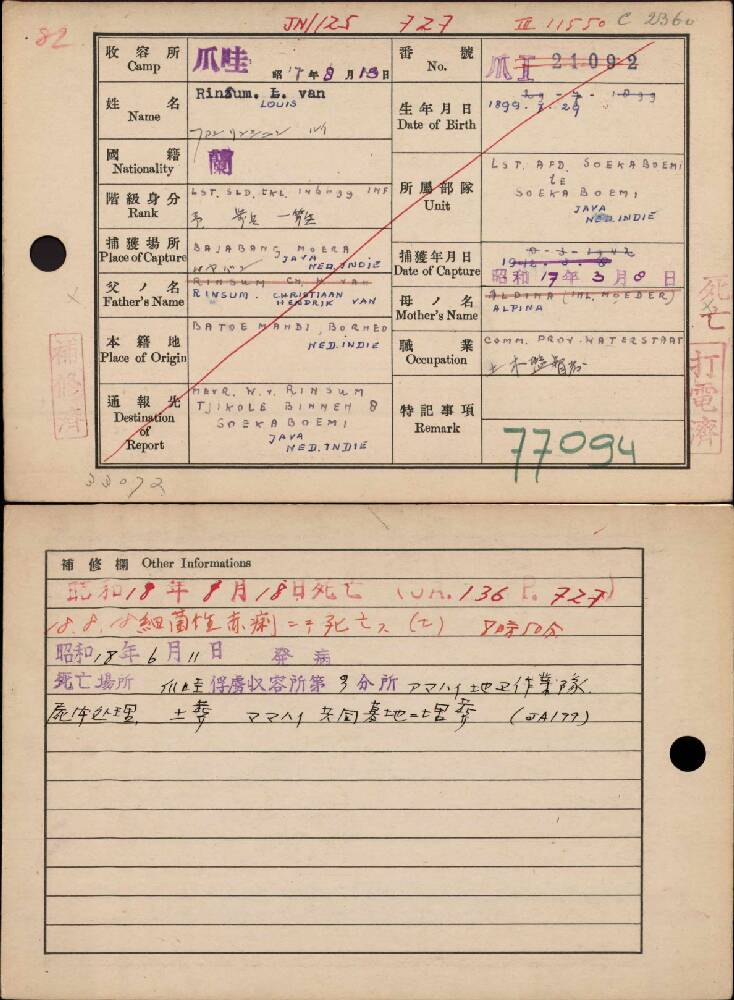 82
JN1125 727 III 11550 C 2360
收容所 Camp 爪哇 昭17年8月15日
番號 No. 爪I 21092
姓名 Name Rinsum. L. van
LOUIS
生年月日 Date of Birth 29 - 7 - 1899
1899. 7. 29
國籍 Nationality 蘭
階級身分 Rank LST. SLD. EKL. INF
所屬部隊 Unit LST. AFD. SOEKABOEMI
TE
SOEKABOEMI
JAVA
NED. INDIE
捕獲場所 Place of Capture BAJABANG, MOERA
JAVA
NED. INDIE
捕獲年月日 Date of Capture 8 - 3 - 1942
1942. 3. 8
昭和17年3月8日
父ノ名 Father's Name RINSUM CH. H. VAN
RINSUM. CHRISTIAAN HENDRIK VAN
母ノ名 Mother's Name ALPINA (INL. MOEDER)
ALPINA
本籍地 Place of Origin BATOE MANDI, BORNEO
NED. INDIE
職業 Occupation COMM. PROV. WATERSTAAT
通報先 Destination of Report MEVR. W. v. RINSUM
TJIKOLE BINNEN 8
SOEKABOEMI
JAVA
NED. INDIE
特記事項 Remark
77094
死亡
打電濟
補修濟
33072
補修欄 Other Informations
昭和18年8月18日死亡 (JA. 136 P. 727)
18.8.18 細菌性赤痢ニテ死亡ス (乙) 8時50分
昭和18年6月11日 発病
死亡場所 爪哇俘虜収容所第3分所アマハイ地区作業隊
屍体処理 土葬 アマハイ共同墓地ニ埋葬 (JA177)